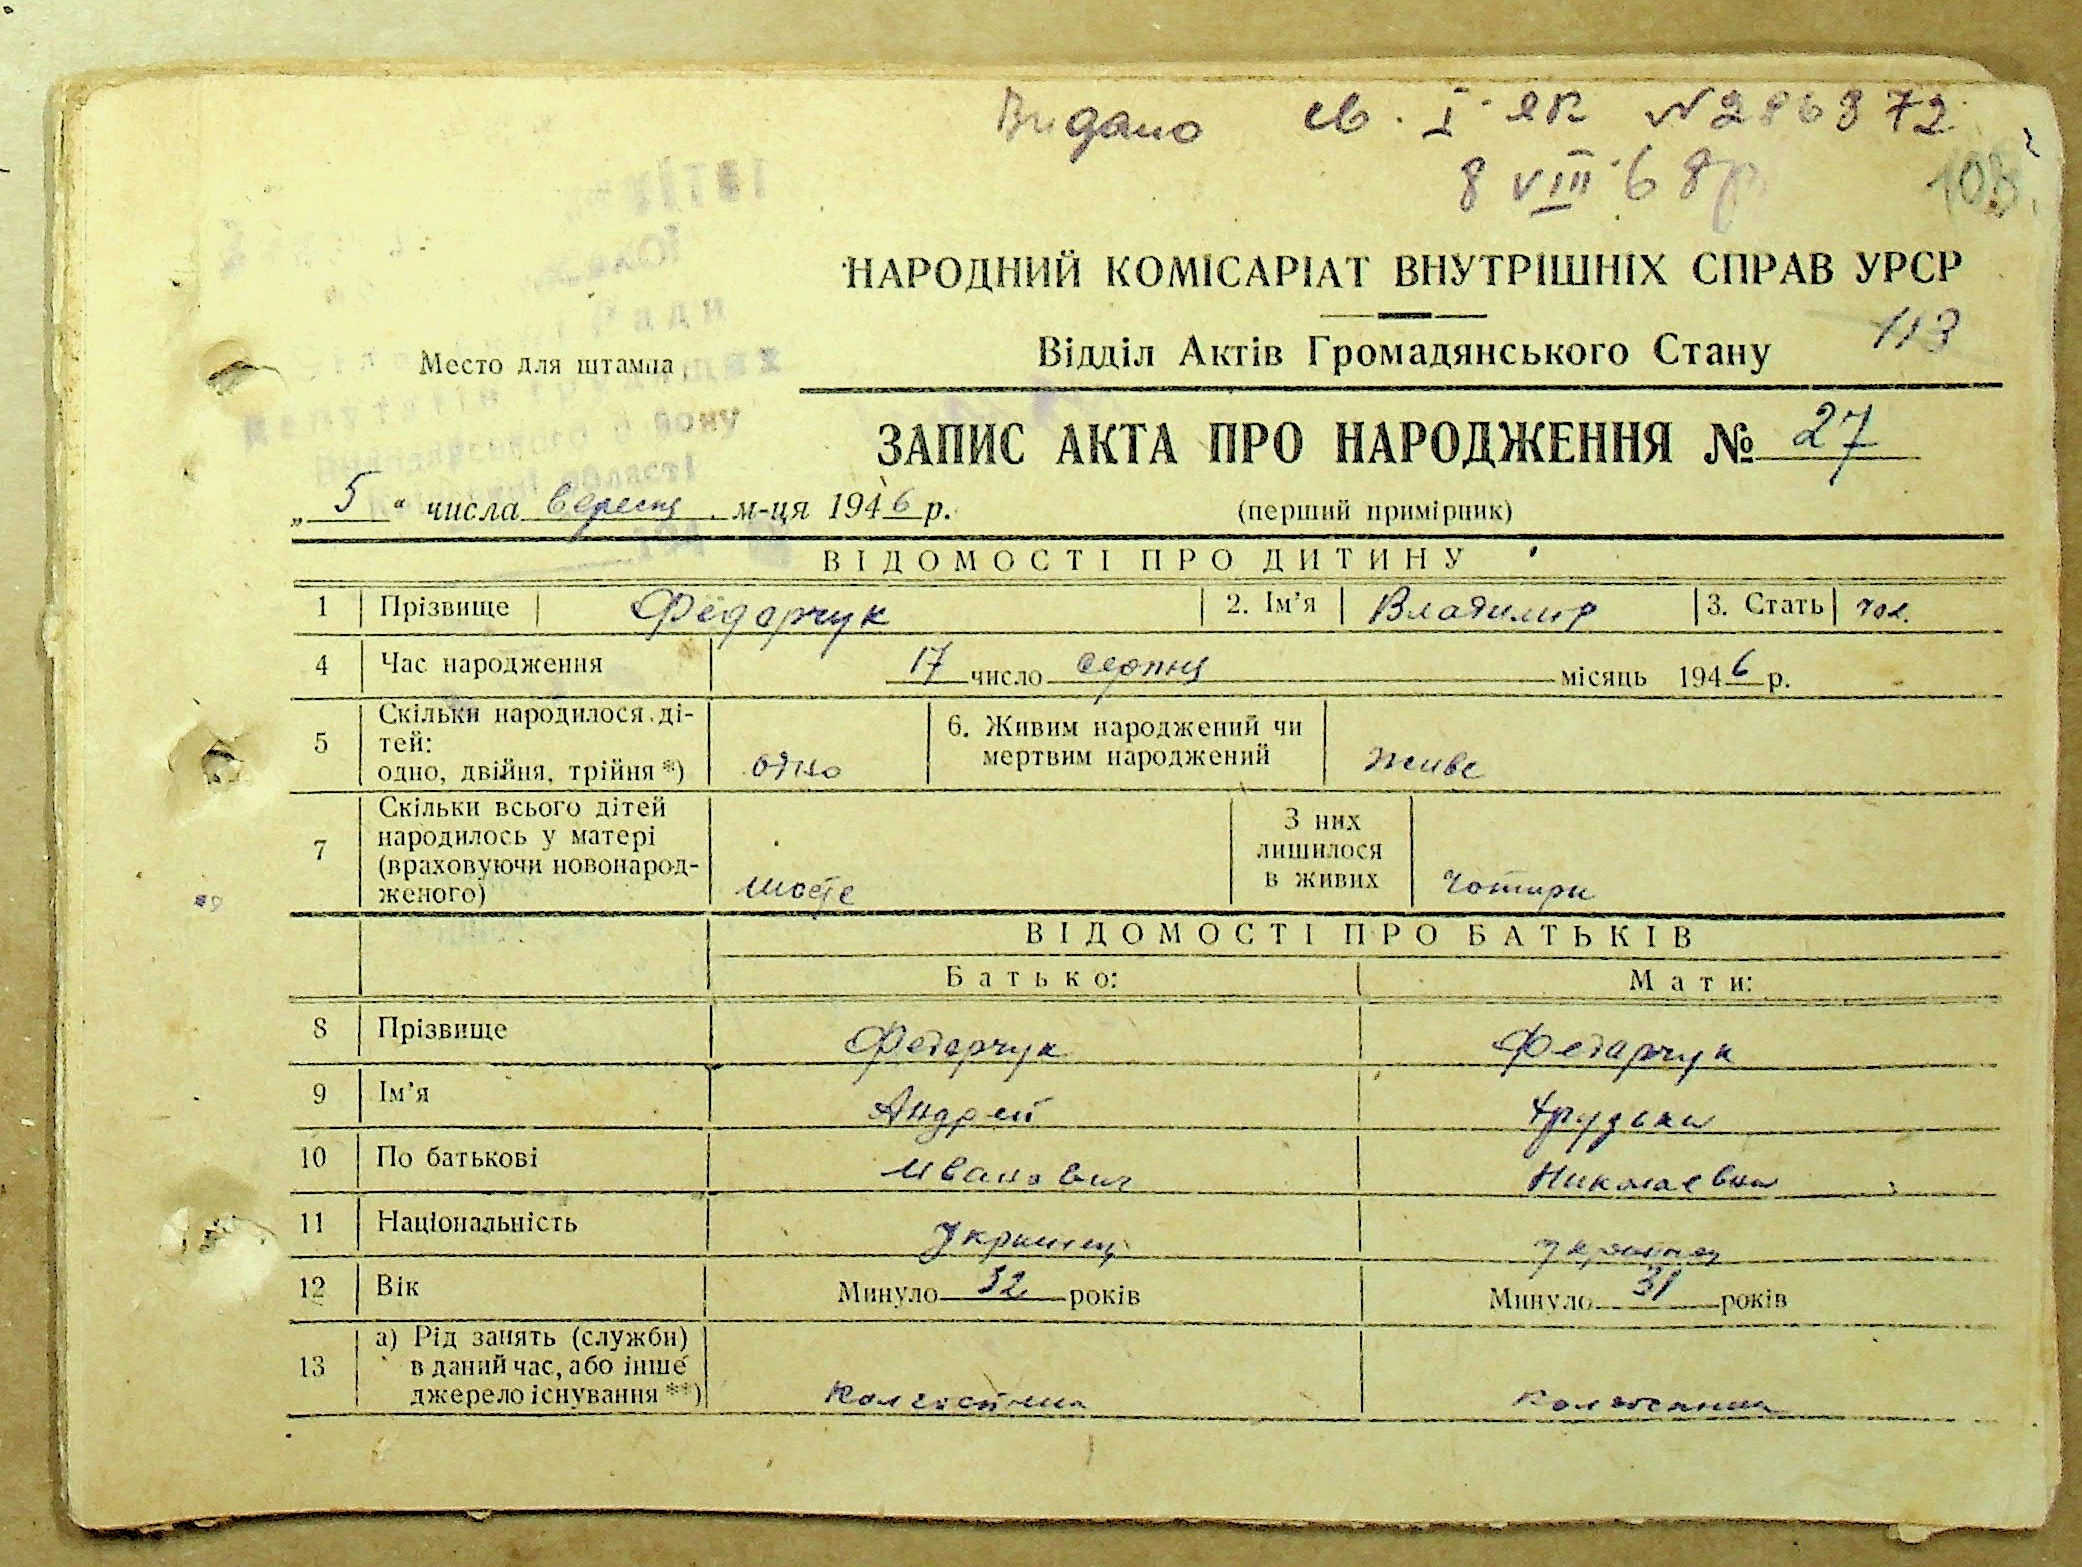 Видано св. I ЯК N 286372
8 VIII 68р
108
НАРОДНИЙ КОМІСАРІАТ ВНУТРІШНІХ СПРАВ УРСР
113
Место для штампа
Відділ Актів Громадянського Стану
ЗАПИС АКТА ПРО НАРОДЖЕННЯ № 27
„5“ числа вересня м-ця 1946 р. (перший примірник)
ВІДОМОСТІ ПРО ДИТИНУ
1 Прізвище Федарчук 2. Ім’я Владимир 3. Стать чол.
4 Час народження 17 число серпня місяць 1946 р.
5 Скільки народилося ді-
тей:
одно, двійня, трійня *) одно
6. Живим народжений чи
мертвим народжений живе
7 Скільки всього дітей
народилось у матері
(враховуючи новонарод-
женого) шосте
З них
лишилося
в живих чотири
ВІДОМОСТІ ПРО БАТЬКІВ
Батько: Мати:
8 Прізвище Федарчук Федарчук
9 Ім’я Андрей
10 По батькові Иванович Николаевна
11 Національність
12 Вік Минуло 32 років Минуло 31 років
13 а) Рід занять (служби)
в даний час, або інше
джерело існування **)